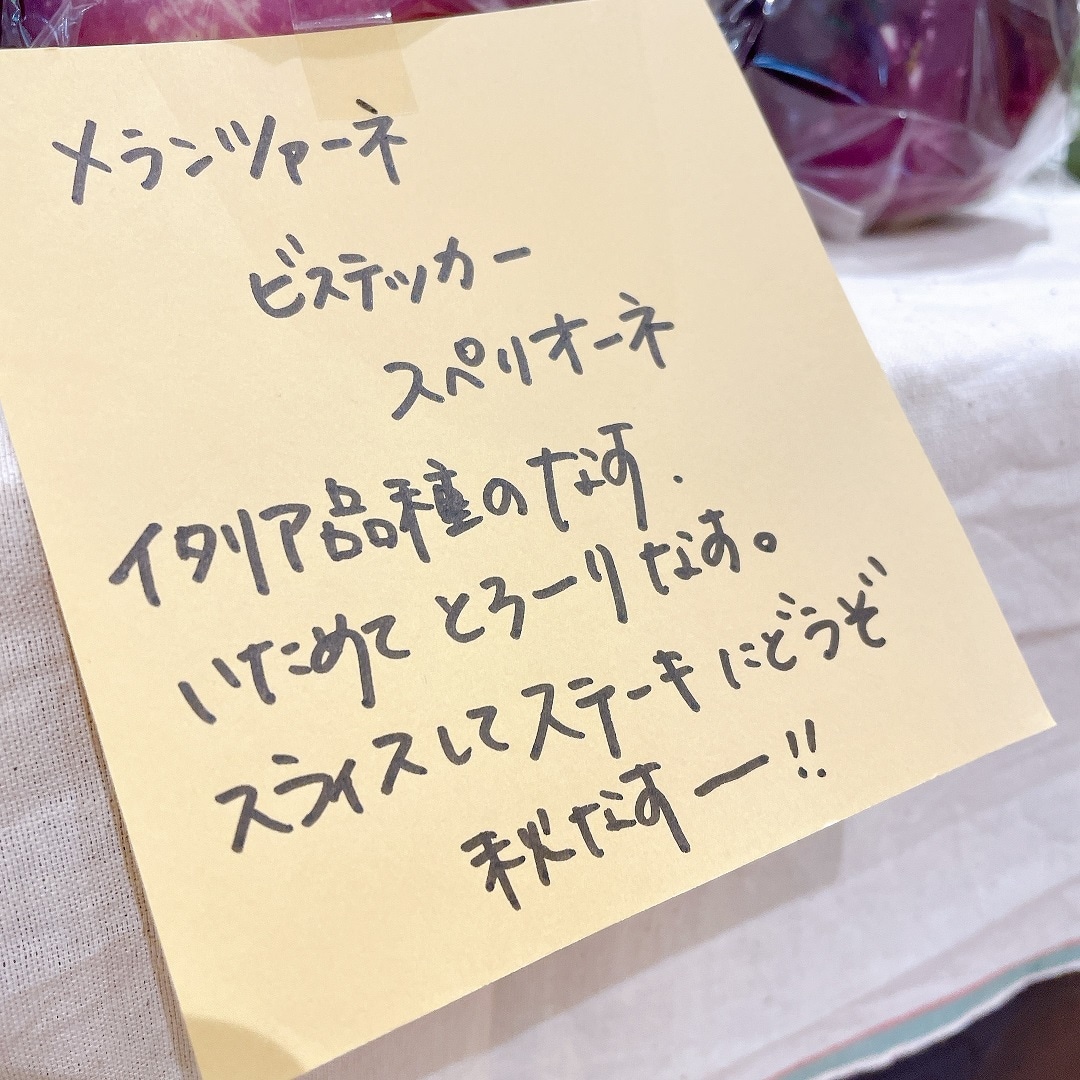 メランツァーネ
ビステッカー
スペリオーネ
イタリア品種のなす.
いためてとろーりなす。
スライスしてステーキにどうぞ
秋なすー!!